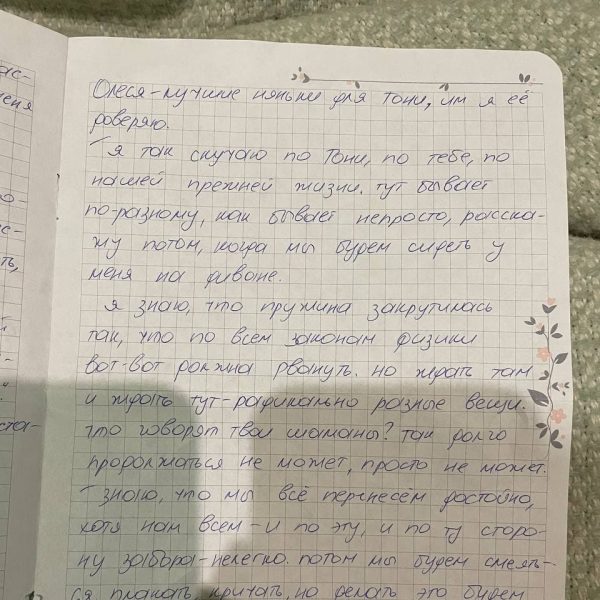 ас-
еня
о-
ас-
ть,
й
-
ста-
Олеся-лучшие няньки для Тони, им я её
доверяю.
я так скучаю по Тони, по тебе, по
нашей прежней жизни. тут бывает
по-разному, как бывает непросто, расска-
жу потом, когда мы будем сидеть у
меня на диване.
я знаю, что пружина закрутилась
так, что по всем законам физики
вот-вот должна рвануть. но ждать там
и ждать тут-радикально разные вещи.
что говорят твои шаманы? так долго
продолжаться не может, просто не может.
знаю, что мы всё перенесём достойно,
хотя нам всем-и по эту, и по ту сторо-
ну забора-нелегко. потом мы будем смеять-
ся плакать, кричать, но делать это будем